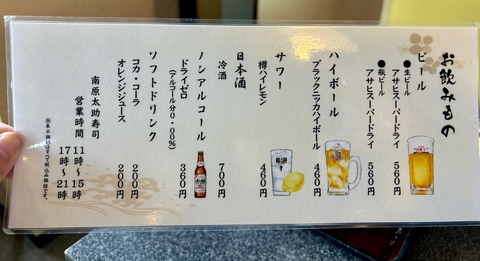 お飲みもの
ビール
●生ビール
アサヒスーパードライ 560
●瓶ビール
アサヒスーパードライ 560
ハイボール
ブラックニッカハイボール 460
サワー
樽ハイレモン 460
日本酒
冷酒 700
ノンアルコール
ドライゼロ 360
(アルコール分0.00%)
ソフトドリンク
コカ・コーラ 200
オレンジジュース 200
南原太助寿司
営業時間 11時〜15時
17時〜21時
※表示価格はすべて税込み価格です。